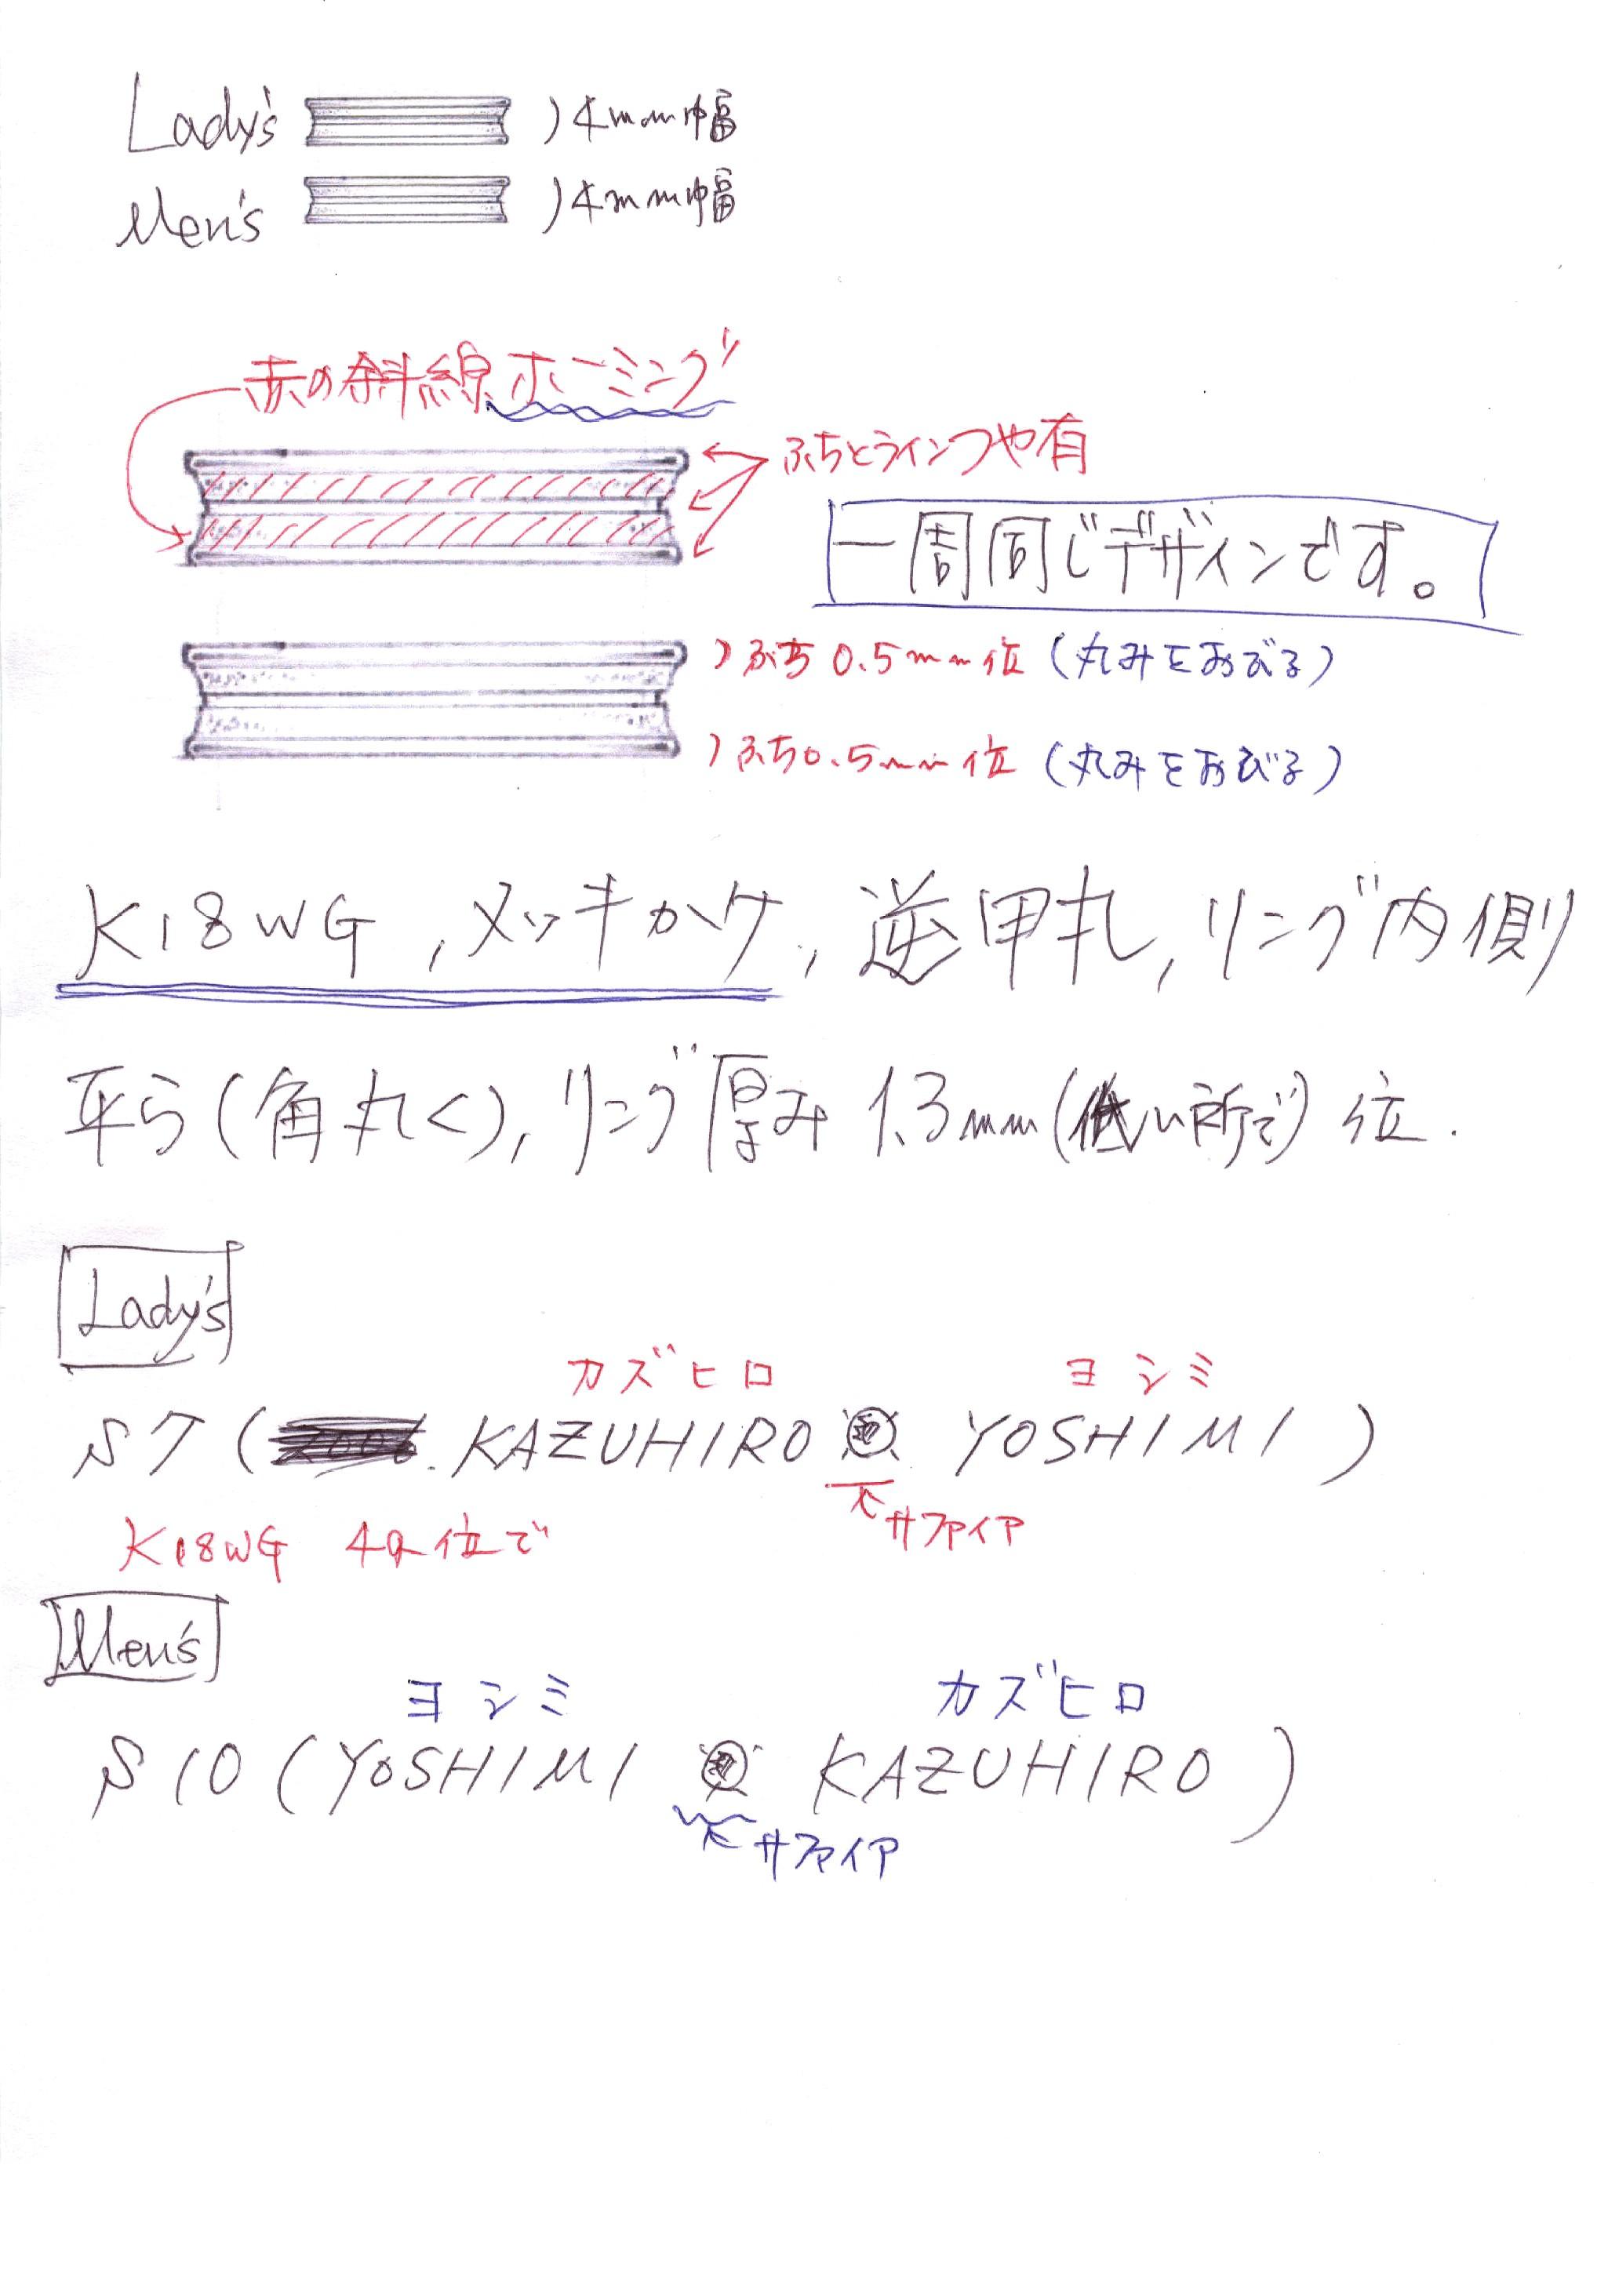 Lady's )4mm巾幅
Men's )4mm巾幅
赤の斜線ホーミング
ふちとラインつや有
一周同じデザインです。
)ふち0.5mm位(丸みをおびる)
)ふち0.5mm位(丸みをおびる)
K18WG,メッキかケ,逆甲丸,リング内側
平ら(角丸く),リング厚み1.3mm(低い所で)位.
Lady's
カズヒロ ヨシミ
S7(KAZUHIRO YOSHIMI)
サファイア
K18WG 4g位で
Men's
ヨシミ カズヒロ
S10(YOSHIMI KAZUHIRO)
サファイア